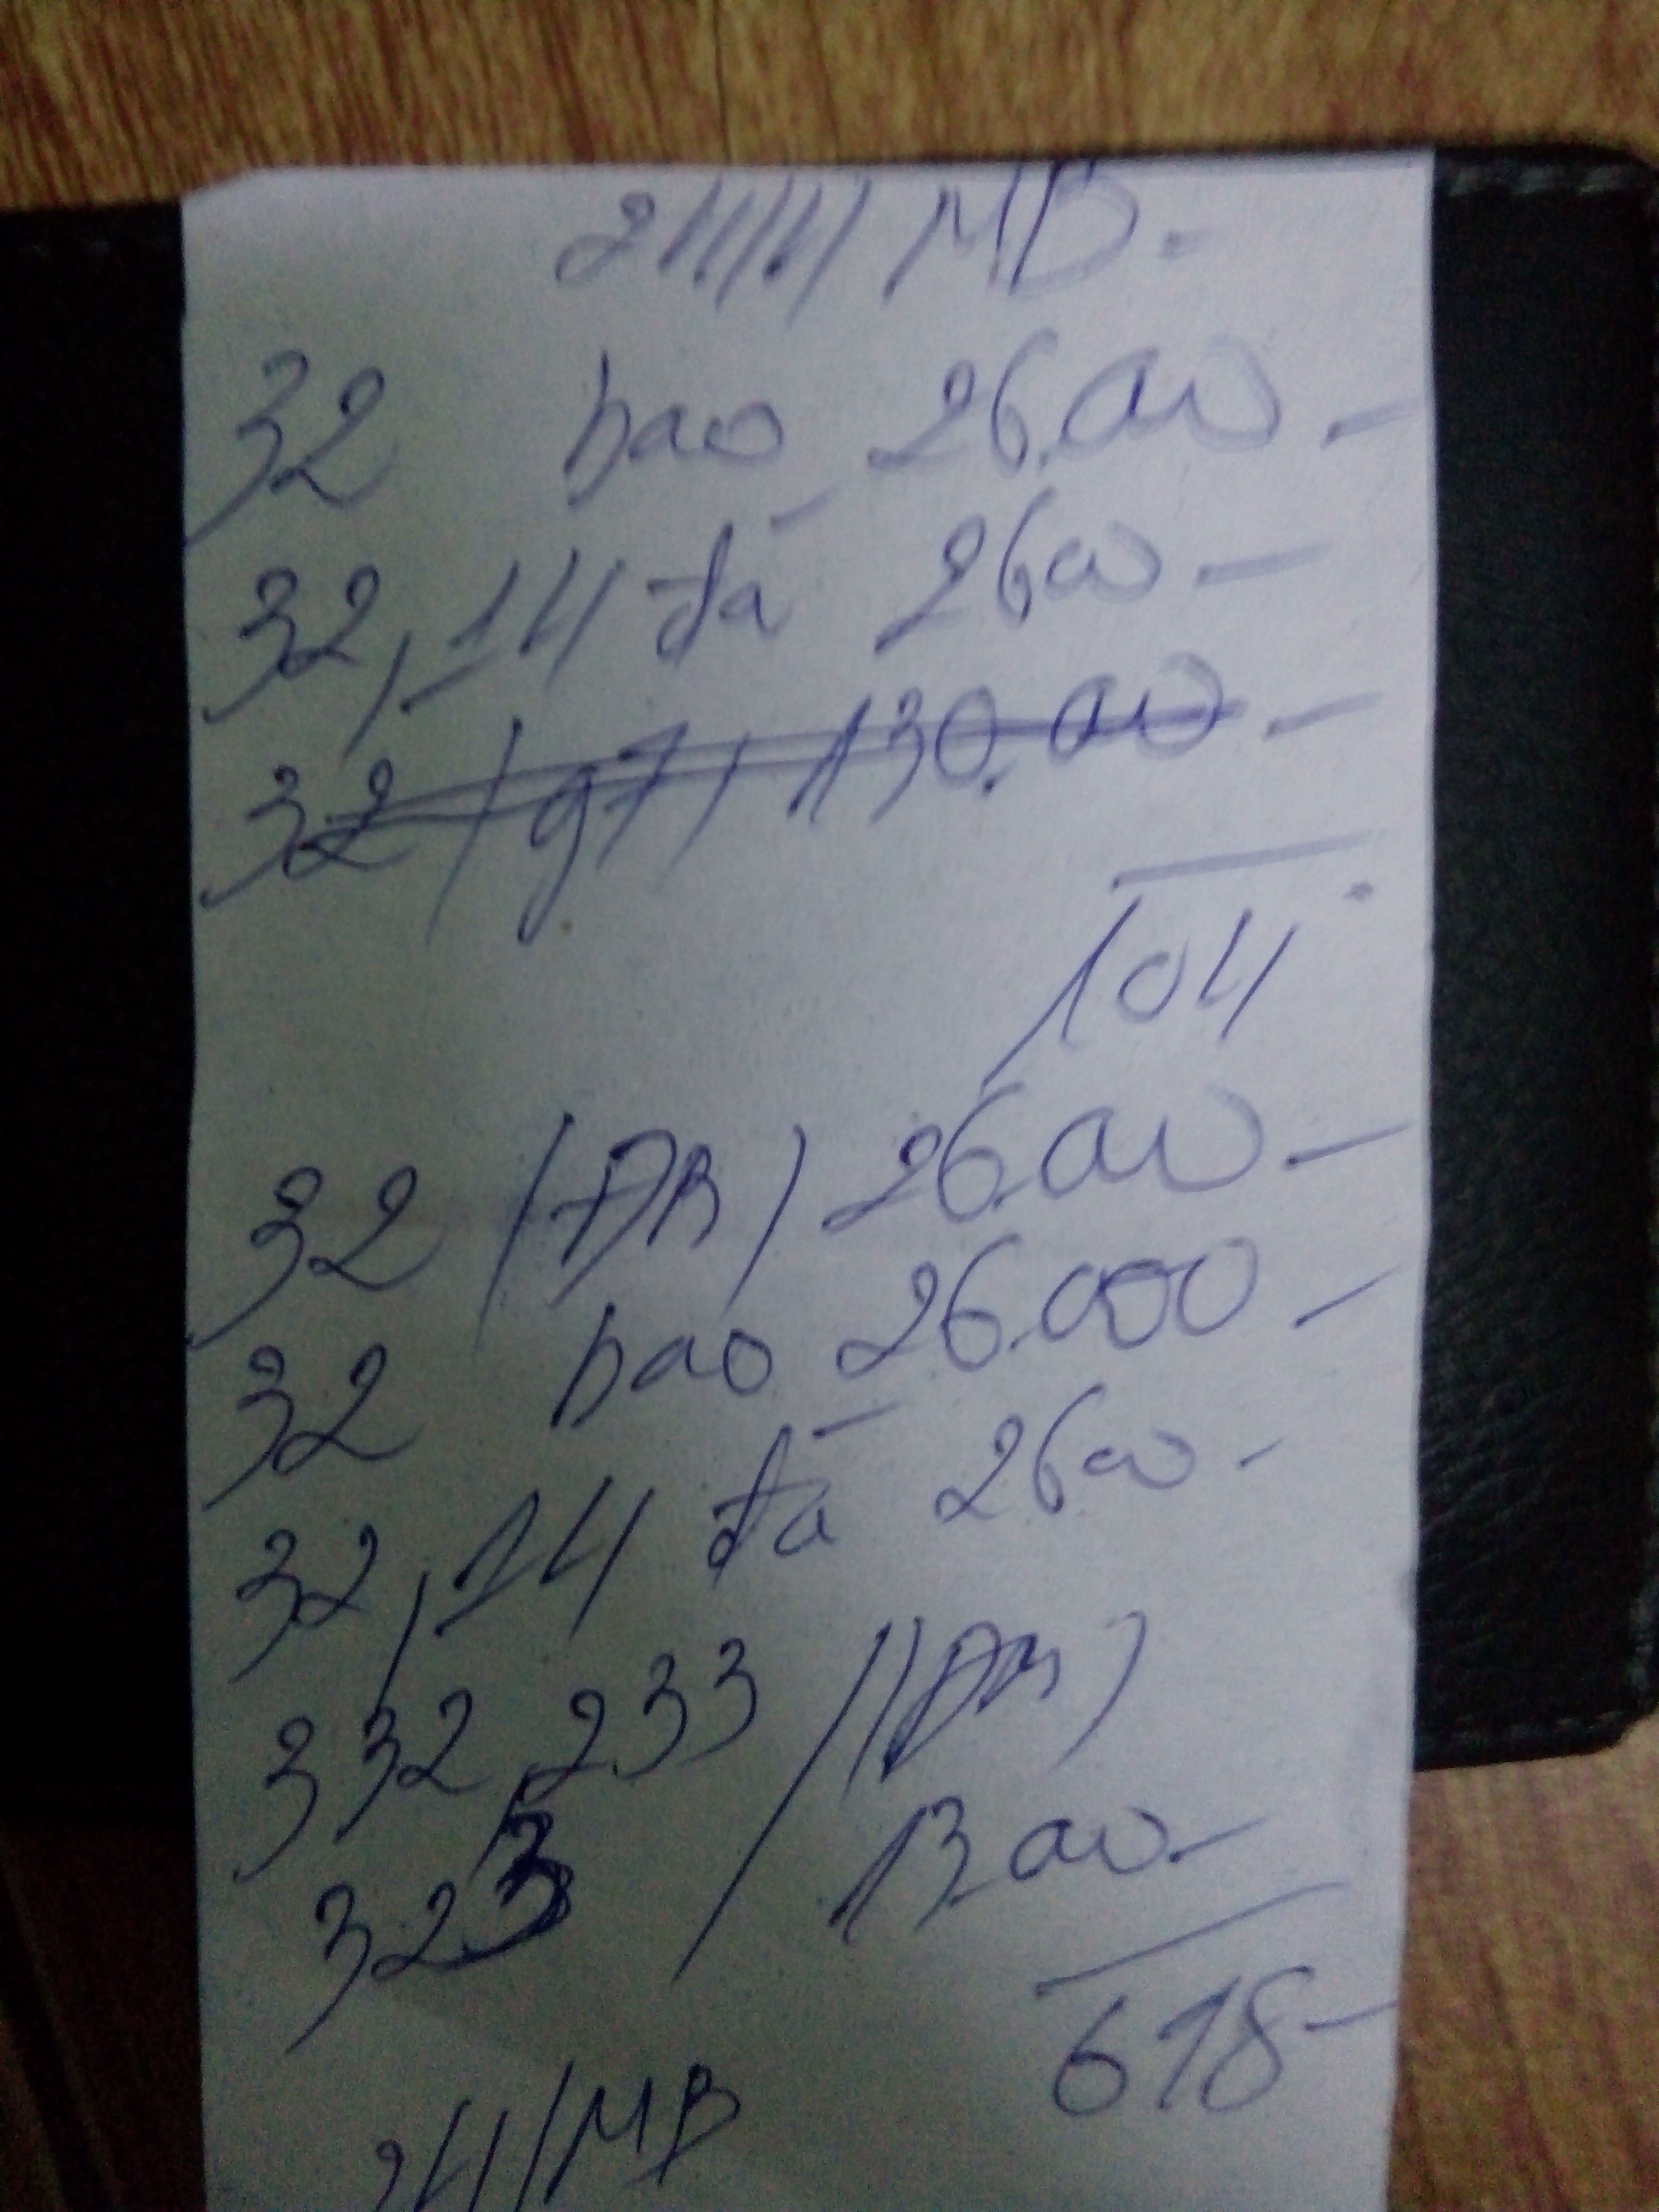 24/11/ MB.
32 bao 26.000 -
32, 14 đá 2600 -
32 (97) 130.000 -
104
32 (ĐB) 26.000 -
32 bao 26.000 -
32, 14 đá 2600 -
332, 233 / (ĐB)
323 / 13000 -
618 -
24/ MB